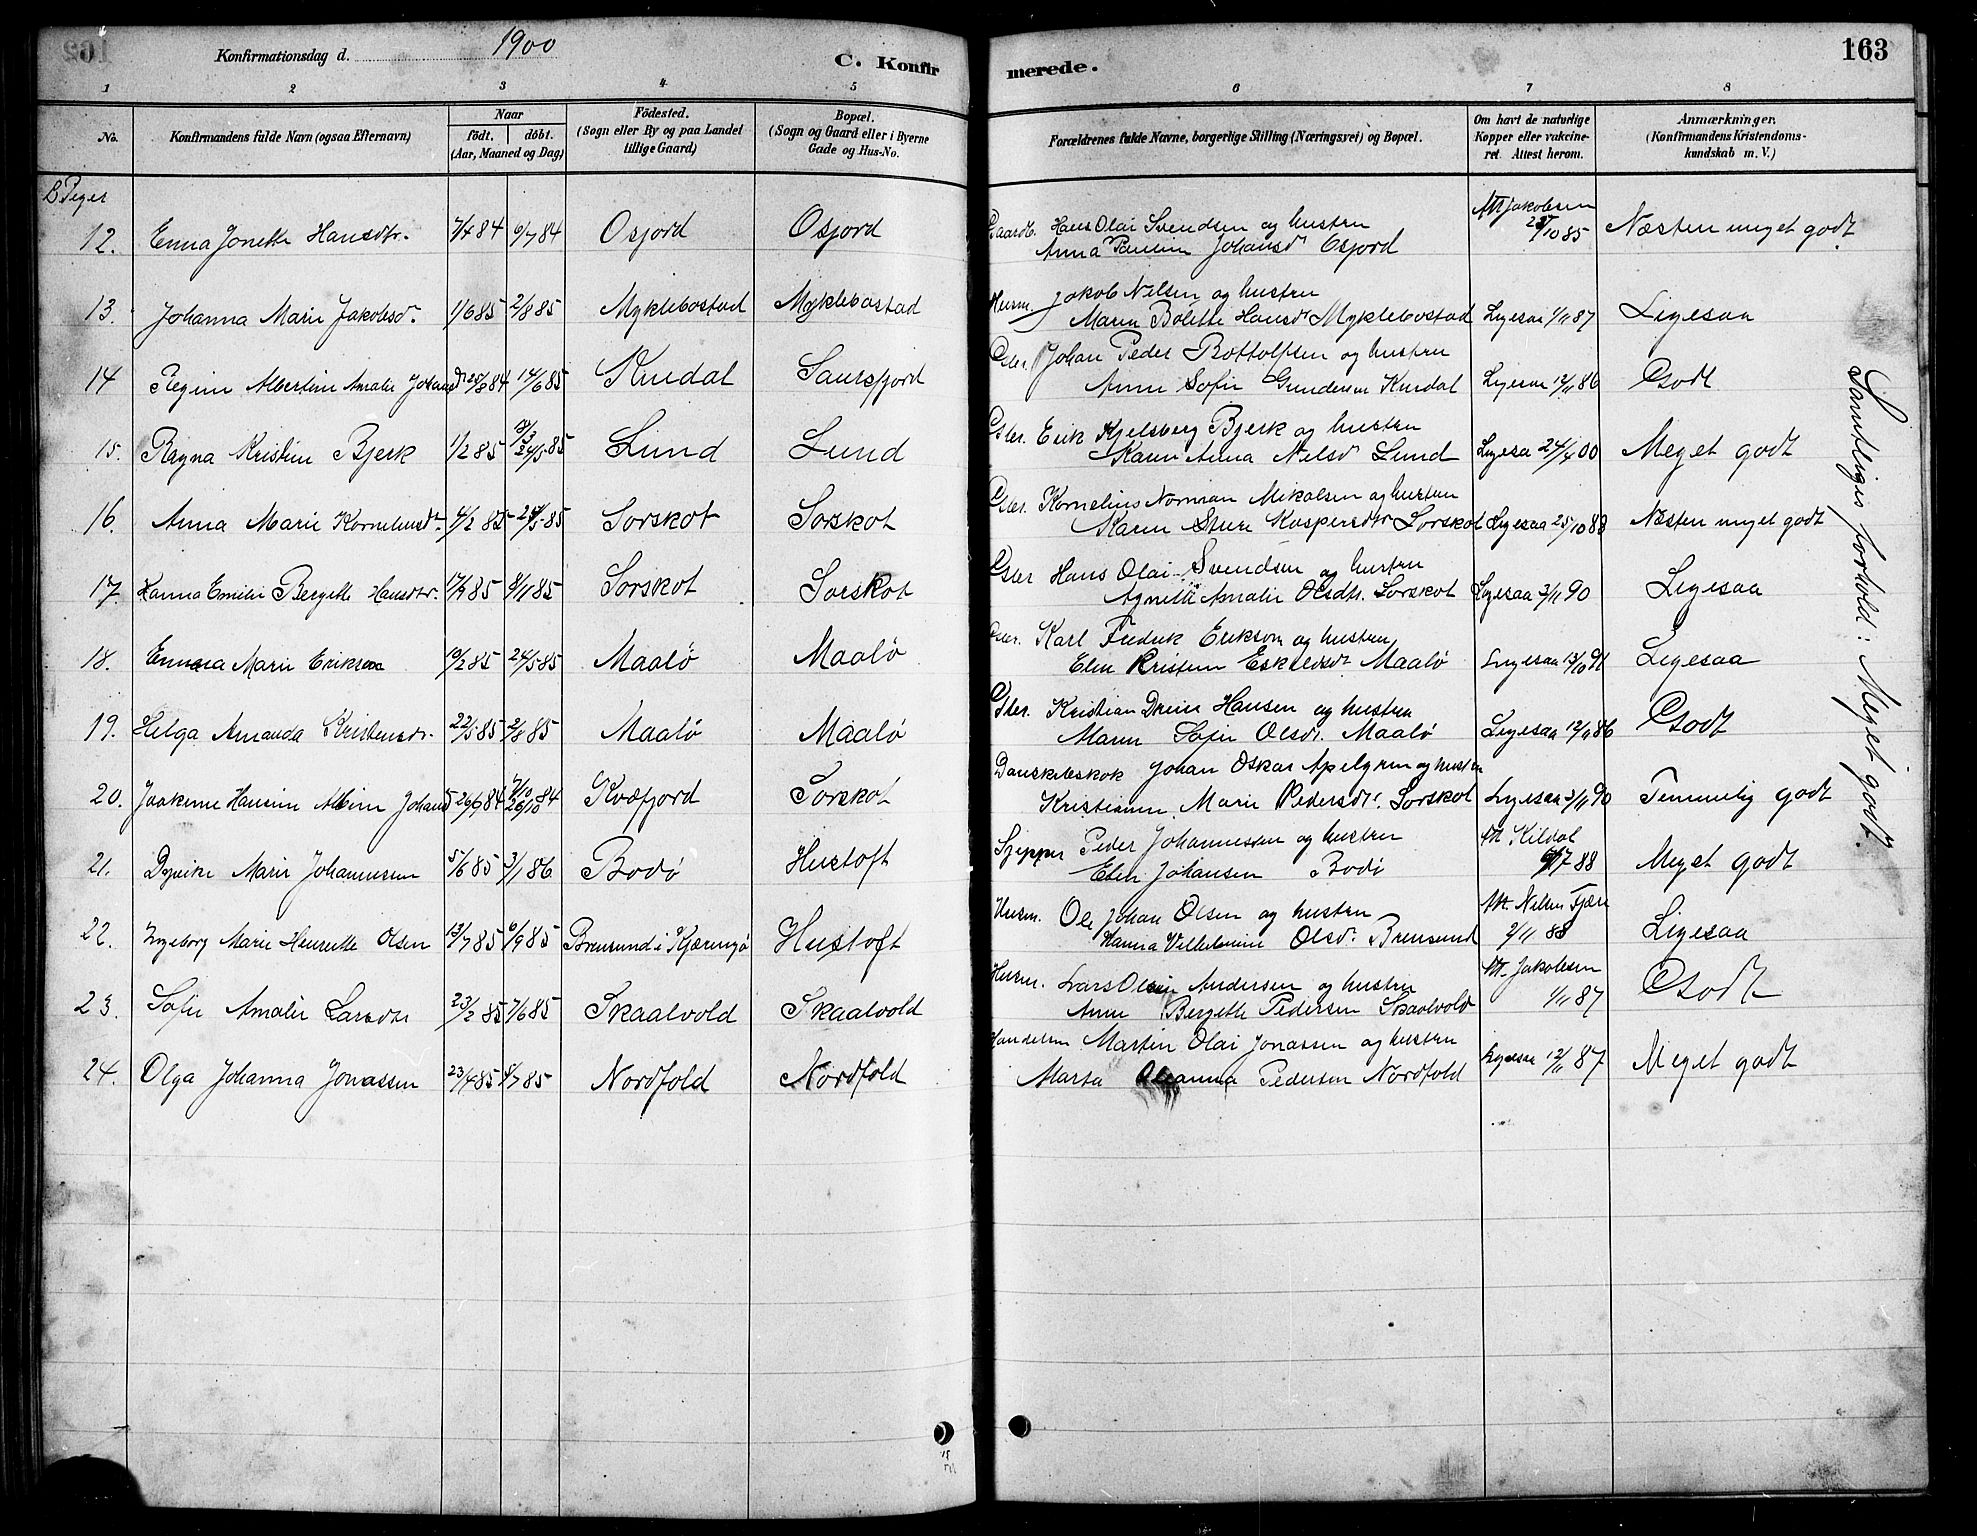 Konfirmationsdag d. 1900
C. Konfirmerede.
163
1 2 3 4 5 6 7 8
No.
Konfirmandens fulde Navn (ogsaa Efternavn)
Naar
födt. döbt.
(Aar, Maaned og Dag)
Födested.
(Sogn eller By og paa Landet
tillige Gaard)
Bopæl.
(Sogn og Gaard eller i Byerne
Gade og Hus-No.
Forældrenes fulde Navne, borgerlige Stilling (Næringsvei) og Bopæl.
Om havt de naturlige
Kopper eller vakcine-
ret. Attest herom.
Anmærkninger.
(Konfirmandens Kristendoms-
kundskab m. V.)
Piger
12. Enna Jonette Hansdtr. 7/4 84 6/7 84 Osjord Osjord
Gaardb. Hans Olai Svendsen og hustru
Anna Paulin Johansd Osjord
Att Jakobsen
10 85
Næsten meget godt
13. Johanna Marie Jakobsd. 1/6 85 2/8 85 Myklebostad Myklebostad
Husm. Jakob Nilsen og hustru
Maren Bolette Hansdr Myklebostad
Ligesaa 1/11 87
Ligesaa
14 Regine Albertine Amalie Johansdr 84 14/6 85 Kusdal Saursfjord
Gbr. Johan Peder Bottolfsen og hustru
Anne Sofie Gundersen Kusdal
Ligesaa 12/11 86
Godt
15. Ragna Kristine Bjerk 1/2 85 24/5 85 Lund Lund
Gbr. Erik Kjelsberg Bjerk og hustru
Karen Anna Nelsdr Lund
Ligesaa 24/4 00
Meget godt
16. Anna Marie Korneliusdr. 4/2 85 24/5 85 Sorskot Sorskot
Gbr. Kornelius Norman Mikalsen og hustru
Karen Kaspersdtr Sorskot
Ligesaa 25/10 88
Næsten meget godt
17. Hanna Emilie Bergette Hansdtr. 17/9 85 8/11 85 Sorskot Sorskot
Gbr Hans Olai Svendsen og hustru
Agnette Amalie Olsdtr. Sorskot
Ligesaa 3/11 90
Ligesaa
18. Emma Marie Eriksen 10/2 85 24/5 85 Maalø Maalø
Gbr. Karl Fredrik Erikson og hustru
Elen Kristine Maalø
Ligesaa 13/10 91
Ligesaa
19. Helga Amanda Kristensdr. 22/5 85 2/8 85 Maalø Maalø
Gbr. Kristian Hansen og hustru
Maren Sofie Olsdr. Maalø
Ligesaa 12/11 86
Godt
20. Joakime Hansine Johansd 84 26/10 84 Kvæfjord Sorskot
Johan Oskar Apelgren og hustru
Kristianne Marie Pedersdr. Sorskot
Ligesaa 3/11 90
Temmelig godt
21. Marie Johannesen 5/6 85 3/1 86 Bodø Hustoft
Skipper Peder Johannessen og hustru
Elen Johansen Bodø
Att Kildal
7 88
Meget godt
22. Ingeborg Marie Henrette Olsen 13/7 85 6/9 85 Brensund i Kjæringø Hustoft
Husm. Ole Johan Olsen og hustru
Hanna Vilhelmine Olsdr. Brensund
Att. Nilsen Fjære
2/11 88
Ligesaa
23. Sofie Amalie Larsdtr 23/2 85 7/6 85 Skaalvold Skaalvold
Husm. Lars Olai Andersen og hustru
Anne Bergette Pedersen Skaalvold
Att. Jakobsen
1/11 87
Godt
24. Olga Johanna Jonassen 23/4 85 5/7 85 Nordfold Nordfold
Handelsm Martin Olai Jonassen og hustru
Marta Oleanna Pedersen Nordfold
Ligesaa 12/11 87
Meget godt
Samtliges forhold: Meget godt